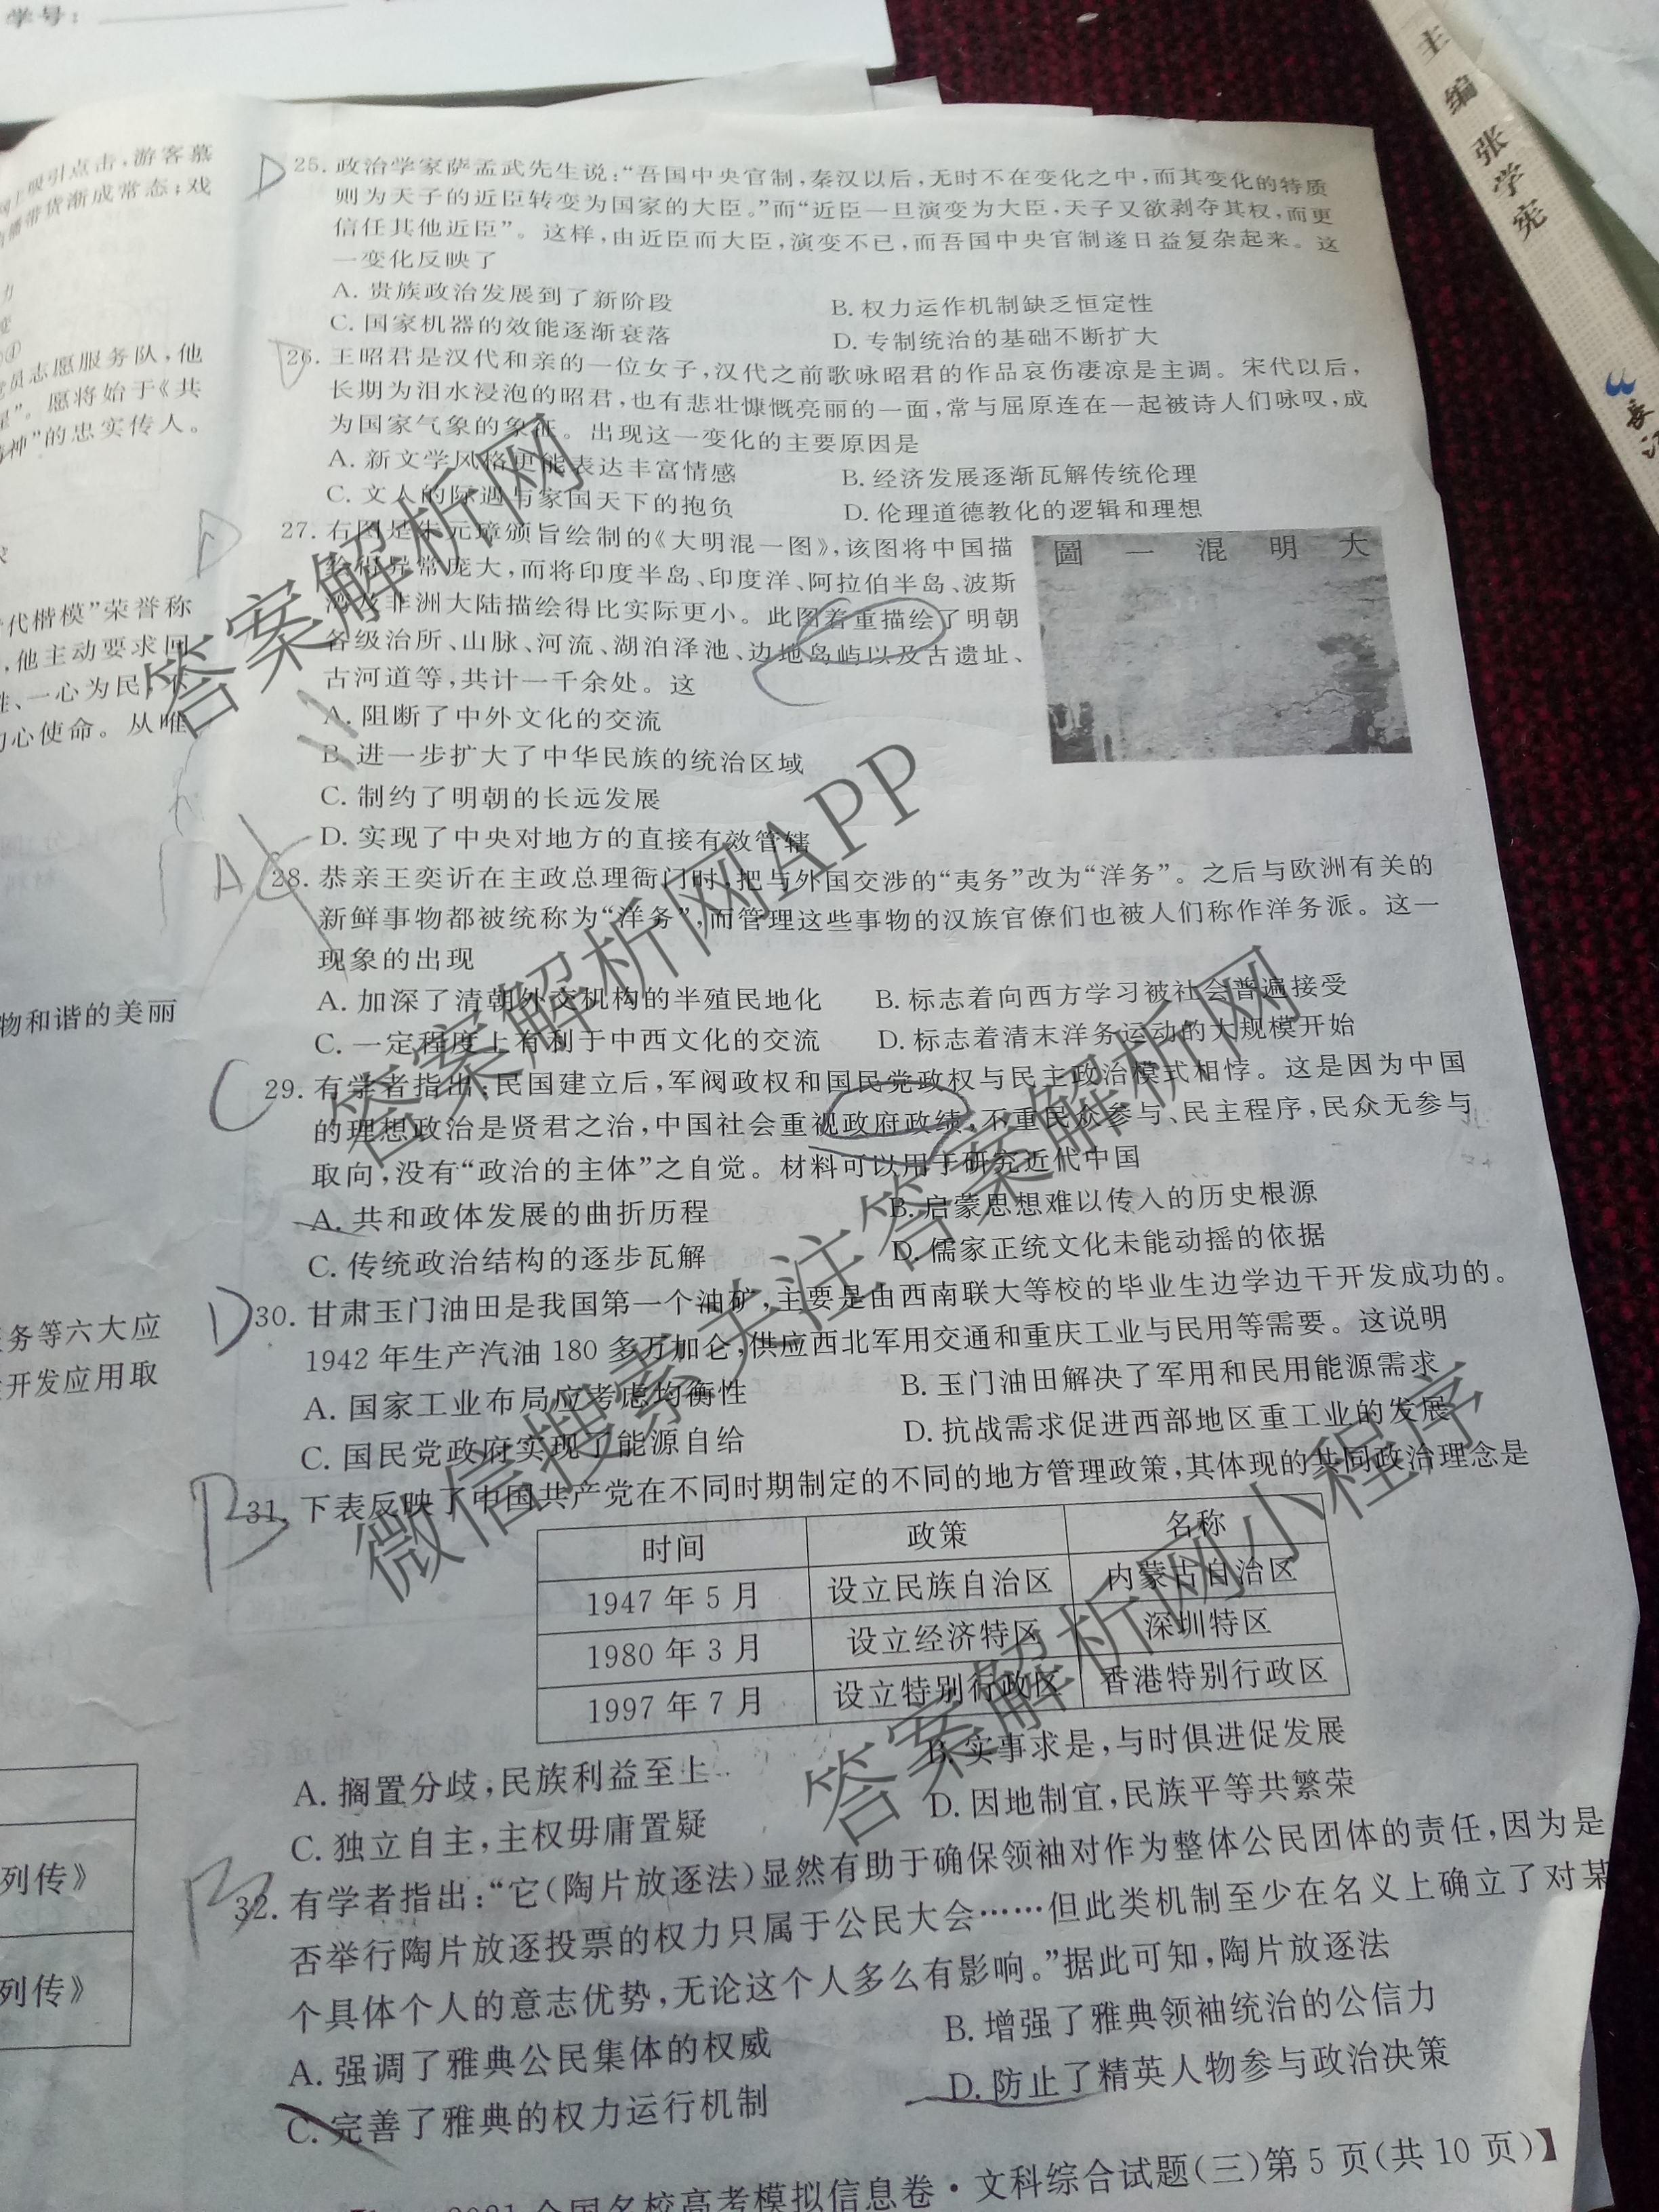 学号：
主编 张学宪
引点击，游客慕
播带货渐成常态；戏
党员志愿服务队，他
星”。愿将始于《共
神”的忠实传人。
代楷模”荣誉称
，他主动要求回
、一心为民，从
心使命。从唯
物和谐的美丽
务等六大应
开发应用取
列传》
列传》
D
25. 政治学家萨孟武先生说：“吾国中央官制，秦汉以后，无时不在变化之中，而其变化的特质
则为天子的近臣转变为国家的大臣。”而“近臣一旦演变为大臣，天子又欲剥夺其权，而更
信任其他近臣”。这样，由近臣而大臣，演变不已，而吾国中央官制遂日益复杂起来。这
一变化反映了
A. 贵族政治发展到了新阶段 B. 权力运作机制缺乏恒定性
C. 国家机器的效能逐渐衰落 D. 专制统治的基础不断扩大
D
26. 王昭君是汉代和亲的一位女子，汉代之前歌咏昭君的作品哀伤凄凉是主调。宋代以后，
长期为泪水浸泡的昭君，也有悲壮慷慨亮丽的一面，常与屈原连在一起被诗人们咏叹，成
为国家气象的象征。出现这一变化的主要原因是
A. 新文学风格更能表达丰富情感 B. 经济发展逐渐瓦解传统伦理
C. 文人的际遇与家国天下的抱负 D. 伦理道德教化的逻辑和理想
27. 右图是朱元璋颁旨绘制的《大明混一图》，该图将中国描
绘得异常庞大，而将印度半岛、印度洋、阿拉伯半岛、波斯
湾及非洲大陆描绘得比实际更小。此图着重描绘了明朝
各级治所、山脉、河流、湖泊泽池、边地岛屿以及古遗址、
古河道等，共计一千余处。这
圖一混明大
A. 阻断了中外文化的交流
B. 进一步扩大了中华民族的统治区域
C. 制约了明朝的长远发展
D. 实现了中央对地方的直接有效管辖
A
28. 恭亲王奕䜣在主政总理衙门时，把与外国交涉的“夷务”改为“洋务”。之后与欧洲有关的
新鲜事物都被统称为“洋务”，而管理这些事物的汉族官僚们也被人们称作洋务派。这一
现象的出现
A. 加深了清朝外交机构的半殖民地化 B. 标志着向西方学习被社会普遍接受
C. 一定程度上有利于中西文化的交流 D. 标志着清末洋务运动的大规模开始
C
29. 有学者指出：民国建立后，军阀政权和国民党政权与民主政治模式相悖。这是因为中国
的理想政治是贤君之治，中国社会重视政府政绩，不重民众参与、民主程序，民众无参与
取向，没有“政治的主体”之自觉。材料可以用于研究近代中国
A. 共和政体发展的曲折历程 B. 启蒙思想难以传入的历史根源
C. 传统政治结构的逐步瓦解 D. 儒家正统文化未能动摇的依据
D
30. 甘肃玉门油田是我国第一个油矿，主要是由西南联大等校的毕业生边学边干开发成功的。
1942年生产汽油180多万加仑，供应西北军用交通和重庆工业与民用等需要。这说明
A. 国家工业布局应考虑均衡性 B. 玉门油田解决了军用和民用能源需求
C. 国民党政府实现了能源自给 D. 抗战需求促进西部地区重工业的发展
B
31. 下表反映了中国共产党在不同时期制定的不同的地方管理政策，其体现的共同政治理念是
时间 政策 名称
1947年5月 设立民族自治区 内蒙古自治区
1980年3月 设立经济特区 深圳特区
1997年7月 设立特别行政区 香港特别行政区
A. 搁置分歧，民族利益至上 B. 实事求是，与时俱进促发展
C. 独立自主，主权毋庸置疑 D. 因地制宜，民族平等共繁荣
B
32. 有学者指出：“它（陶片放逐法）显然有助于确保领袖对作为整体公民团体的责任，因为是
否举行陶片放逐投票的权力只属于公民大会……但此类机制至少在名义上确立了对某
个具体个人的意志优势，无论这个人多么有影响。”据此可知，陶片放逐法
A. 强调了雅典公民集体的权威 B. 增强了雅典领袖统治的公信力
C. 完善了雅典的权力运行机制 D. 防止了精英人物参与政治决策
2021全国名校高考模拟信息卷·文科综合试题（三）第5页（共10页）】
答案解析网
答案解析网APP
微信搜索关注答案解析网
答案解析网小程序